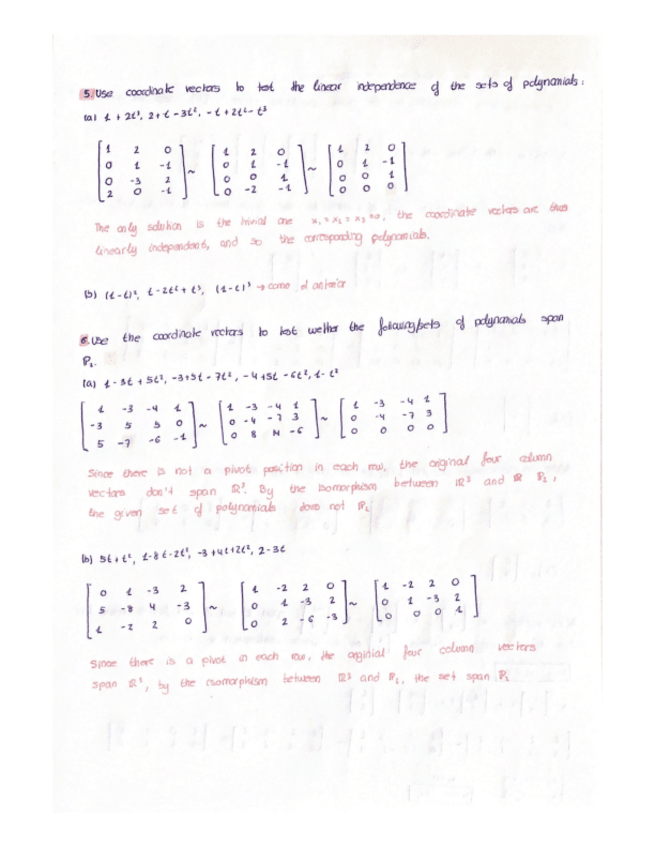 5. Use coordinate vectors to test the linear independence of the sets of polynomials:
(a) 1 + 2t³, 2 + t - 3t², -t + 2t² - t³
[1 2 0; 0 1 -1; 0 -3 2; 2 0 -1] ~ [1 2 0; 0 1 -1; 0 0 1; 0 -2 -1] ~ [1 2 0; 0 1 -1; 0 0 1; 0 0 0]
The only solution is the trivial one x₁ = x₂ = x₃ = 0, the coordinate vectors are thus
linearly independent, and so the corresponding polynomials.
(b) (1-t)², t - 2t² + t³, (1-t)³ → como el anterior
6. Use the coordinate vectors to test wether the following sets of polynomials span
P₂.
(a) 1 - 3t + 5t², -3 + 5t - 7t², -4 + 5t - 6t², 1 - t²
[1 -3 -4 1; -3 5 5 0; 5 -7 -6 -1] ~ [1 -3 -4 1; 0 -4 -7 3; 0 8 14 -6] ~ [1 -3 -4 1; 0 -4 -7 3; 0 0 0 0]
Since there is not a pivot position in each row, the original four column
vectors don't span ℝ³. By the isomorphism between ℝ³ and P₂,
the given set of polynomials does not P₂
(b) 5t + t², 1 - 8t - 2t², -3 + 4t + 2t², 2 - 3t
[0 1 -3 2; 5 -8 4 -3; 1 -2 2 0] ~ [1 -2 2 0; 0 1 -3 2; 0 2 -6 -3] ~ [1 -2 2 0; 0 1 -3 2; 0 0 0 1]
Since there is a pivot in each row, the original four column vectors
span ℝ³, by the isomorphism between ℝ³ and P₂, the set span P₂